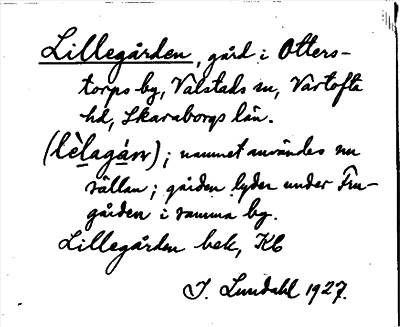 Lillegården, gård i Otters-
torps bg, Valstads sn, Vartofta
hd, Skaraborgs län.
(lèlagán); namnet användes nu
sällan; gården lyder under Fru-
gården i samma bg.
Lillegården bek, Kb
I. Lundahl 1927.